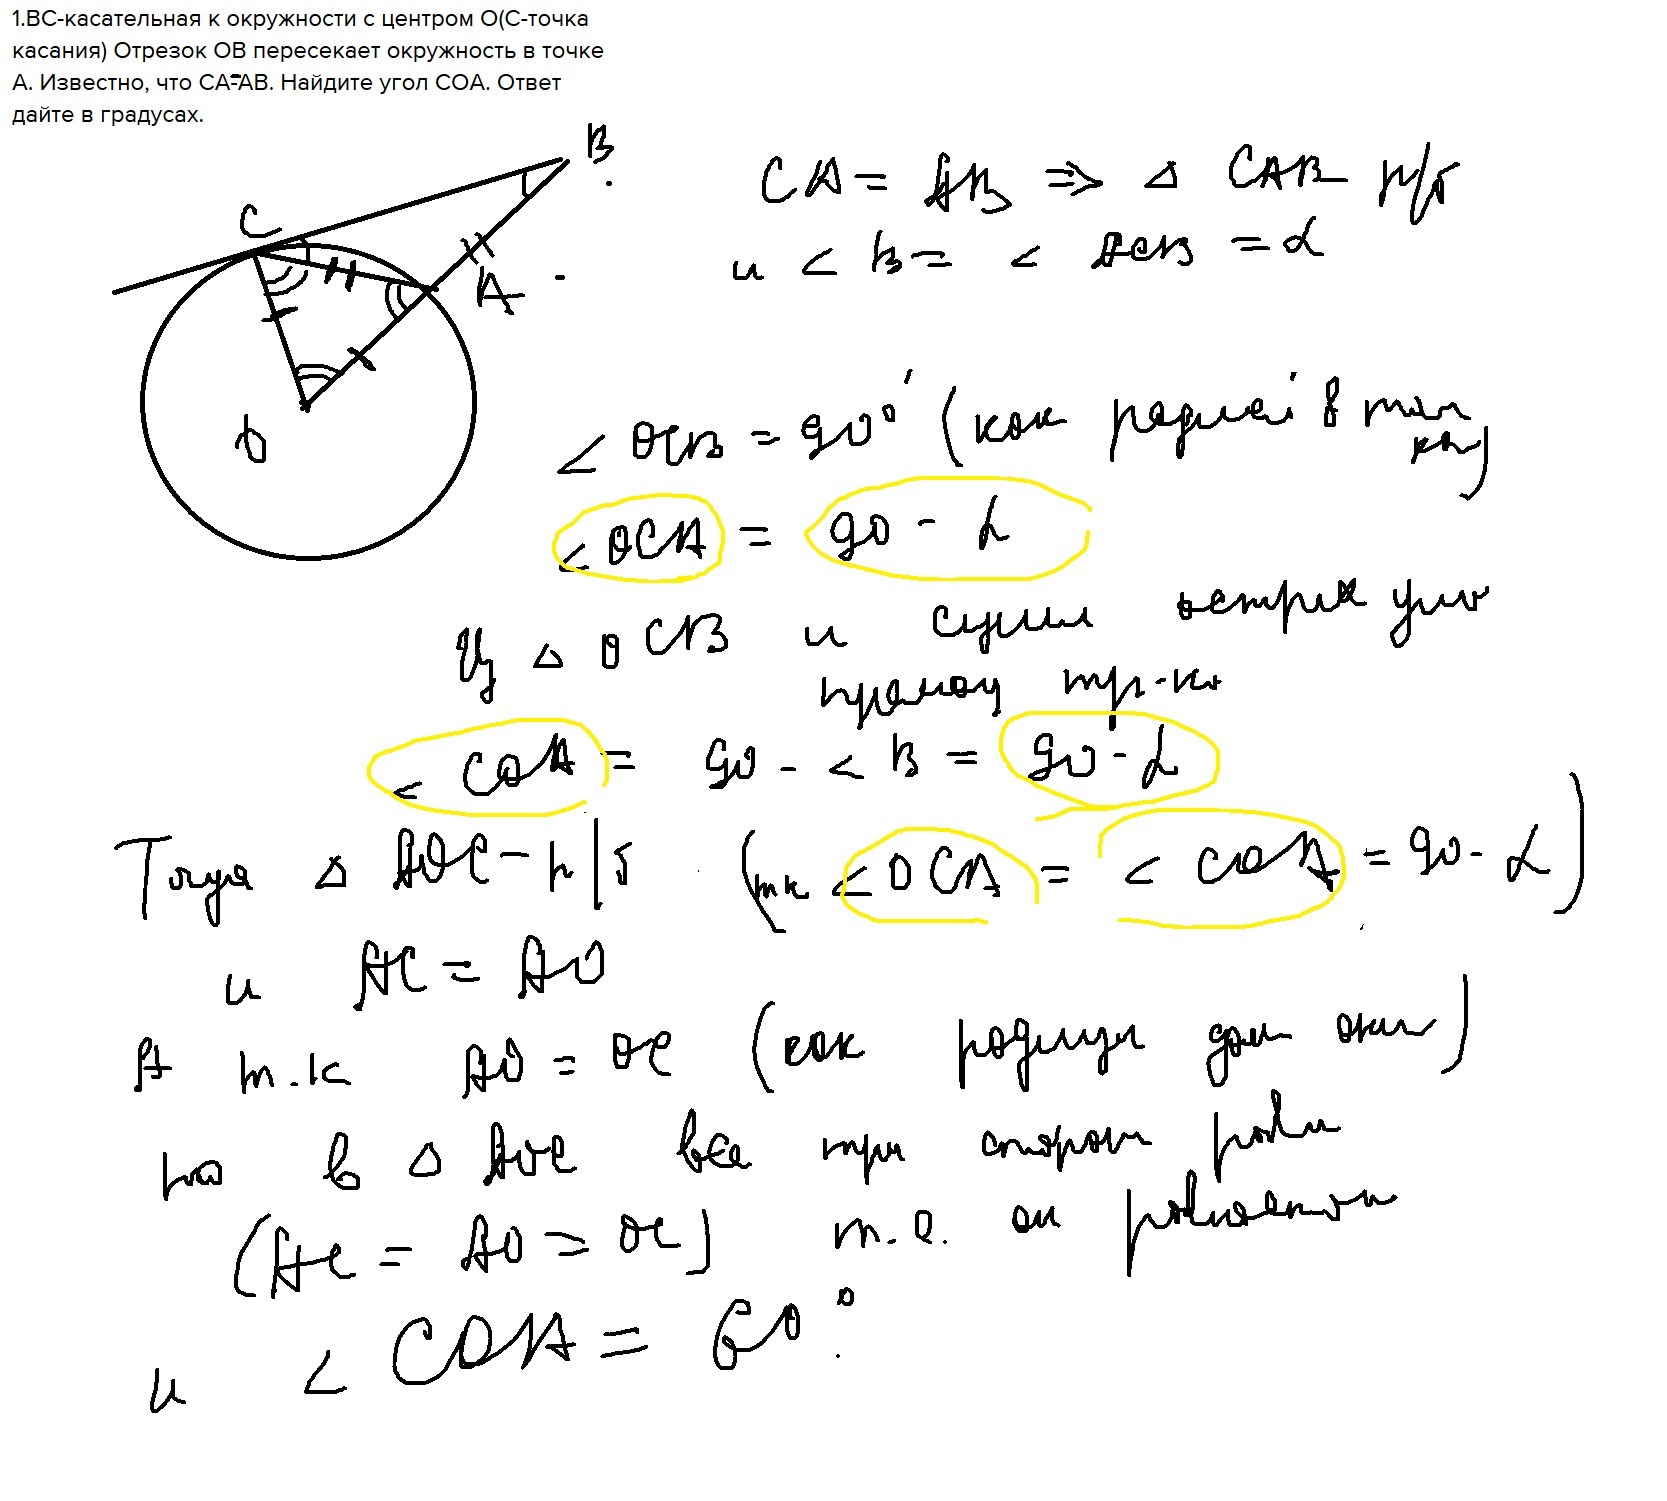 1.ВС-касательная к окружности с центром О(С-точка
касания) Отрезок ОВ пересекает окружность в точке
А. Известно, что СА=АВ. Найдите угол СОА. Ответ
дайте в градусах.
B
C
A
O
CA = AB => △ CAB р/б
и < B = < ACB = α
< OCB = 90° (как в
< OCA = 90 - α
Из △ OCB и острых
тр-ка
< COA = 90 - < B = 90 - α
Тогда △ AOC - р/б (тк < OCA = < COA = 90 - α)
и AC = AO
А т.к AO = OC (как радиусы)
то в △ AOC все три стороны
(AC = AO = OC) т.е. он
и < COA = 60°.